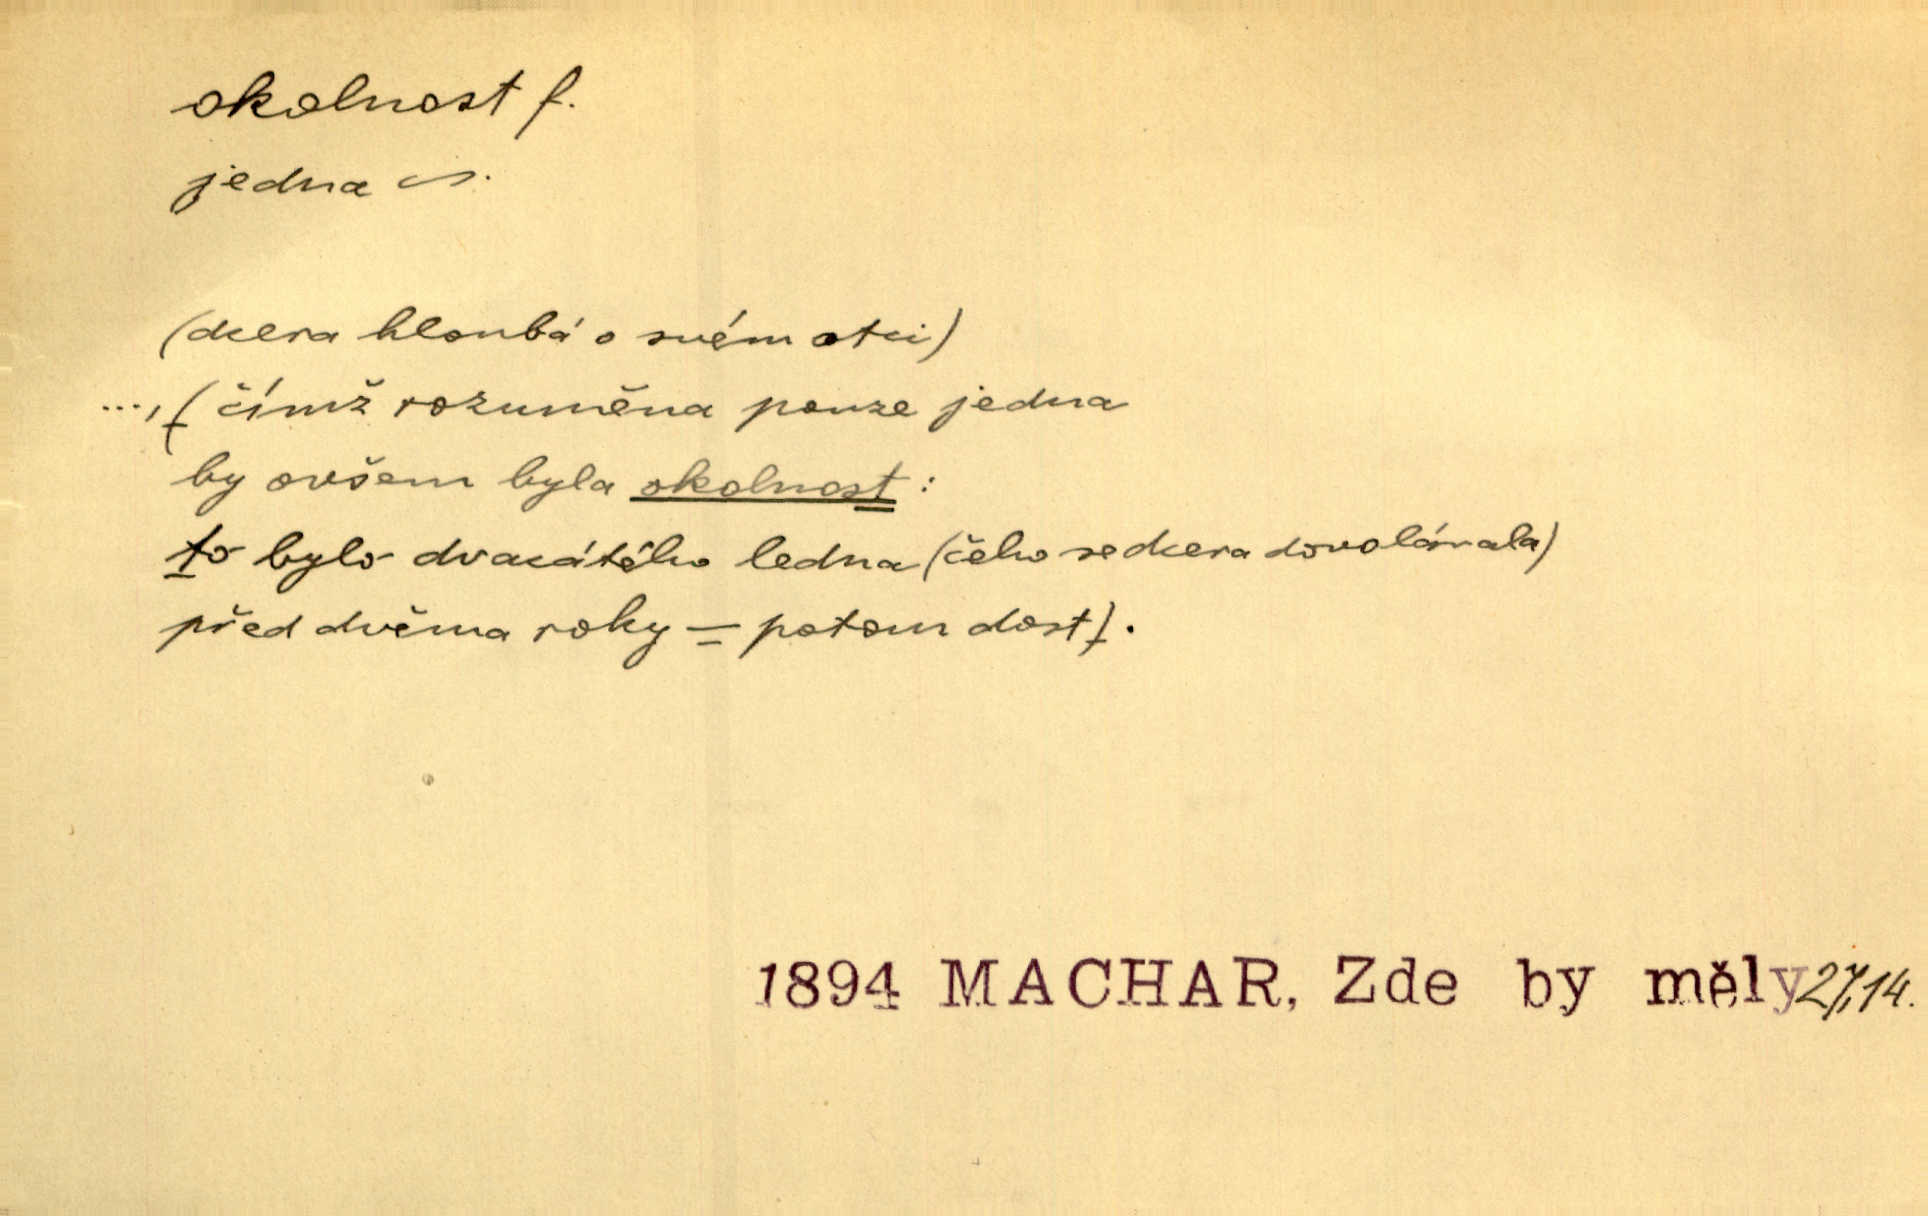 okolnost f.
jedna ~.
(dcera hloubá o svém otci)
..., (čímž rozuměna pouze jedna
by ovšem byla okolnost :
to bylo dvacátého ledna (čeho se dcera dovolávala)
před dvěma roky — potom dost).
1894 MACHAR, Zde by měly 27,14.